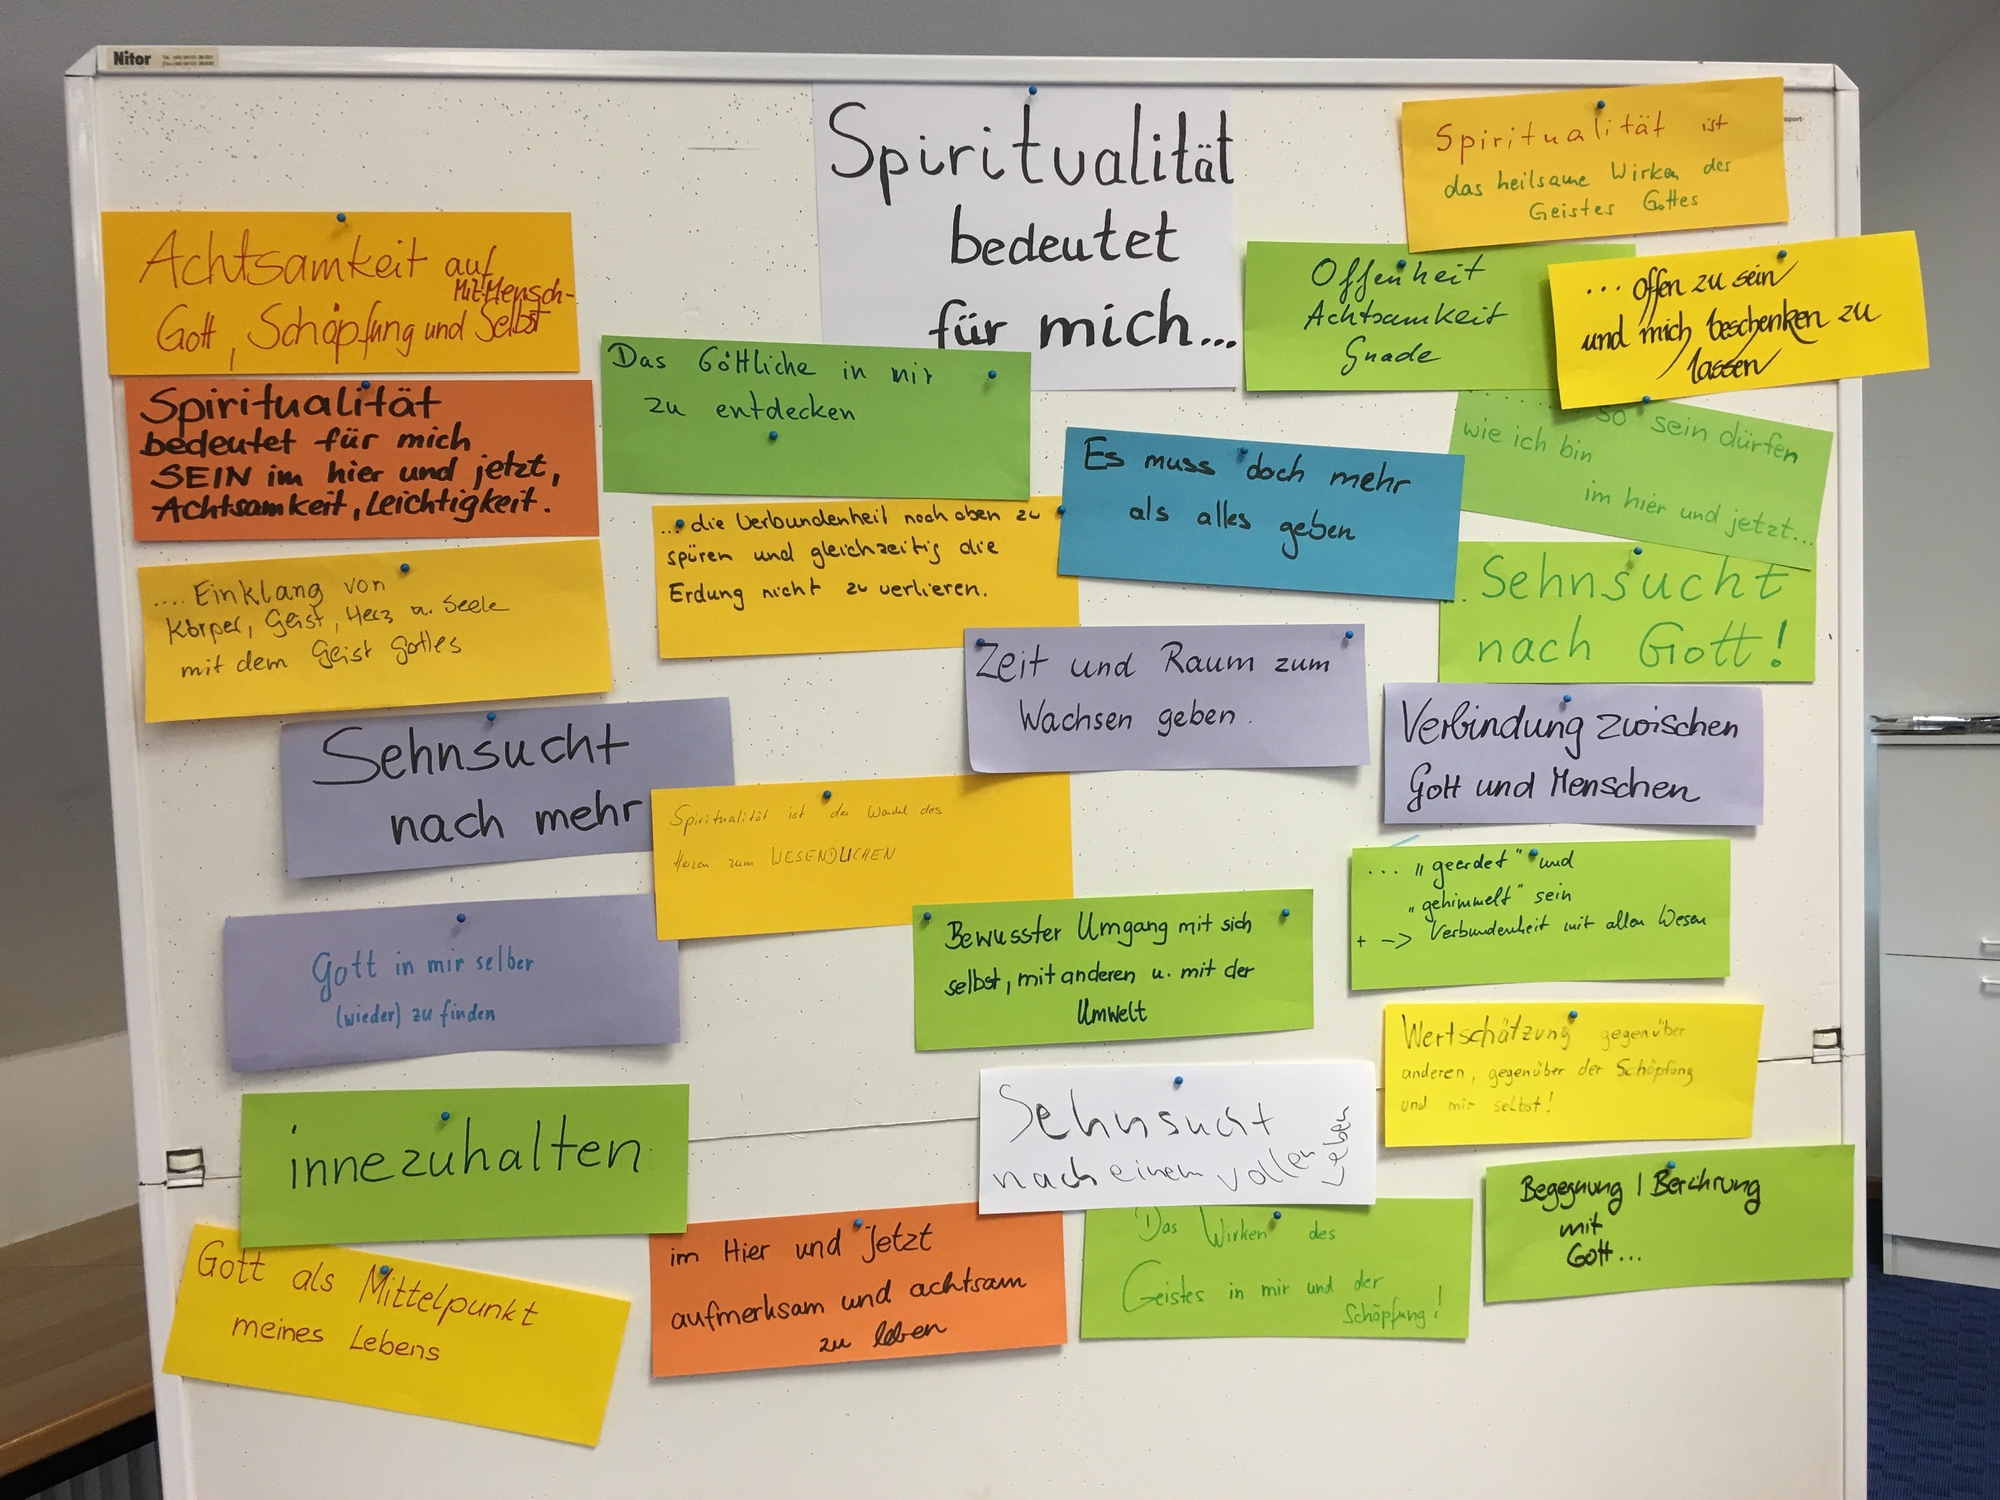 Nitor
Spiritualität
bedeutet
für mich...
Spiritualität ist
das heilsame Wirken des
Geistes Gottes
Achtsamkeit auf
Mit-Mensch-
Gott, Schöpfung und Selbst
Offenheit
Achtsamkeit
Gnade
... offen zu sein
und mich beschenken zu
lassen
Das Göttliche in mir
zu entdecken
Spiritualität
bedeutet für mich
SEIN im hier und jetzt,
Achtsamkeit, Leichtigkeit.
Es muss doch mehr
als alles geben
so sein dürfen
wie ich bin
im hier und jetzt...
... die Verbundenheit nach oben zu
spüren und gleichzeitig die
Erdung nicht zu verlieren.
.... Einklang von
Körper, Geist, Herz u. Seele
mit dem Geist Gottes
Sehnsucht
nach Gott!
Zeit und Raum zum
Wachsen geben.
Verbindung zwischen
Gott und Menschen
Sehnsucht
nach mehr
Spiritualität ist der Wandel des
Herzen zum WESENDLICHEN
... "geerdet" und
"gehimmelt" sein
+ -> Verbundenheit mit allen Wesen
Gott in mir selber
(wieder) zu finden
Bewusster Umgang mit sich
selbst, mit anderen u. mit der
Umwelt
Wertschätzung gegenüber
anderen, gegenüber der Schöpfung
und mir selbst!
innezuhalten
Sehnsucht
nach einem vollen
Leben
Begegnung / Berührung
mit
Gott...
Gott als Mittelpunkt
meines Lebens
im Hier und Jetzt
aufmerksam und achtsam
zu leben
Das Wirken des
Geistes in mir und der
Schöpfung!